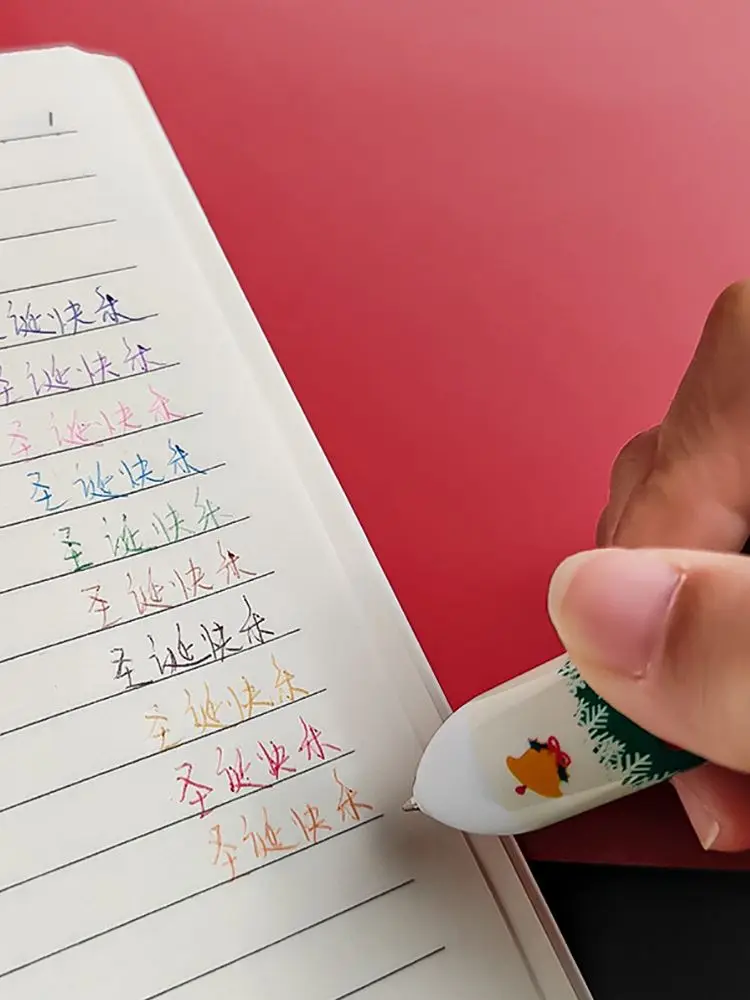 圣诞快乐
圣诞快乐
圣诞快乐
圣诞快乐
圣诞快乐
圣诞快乐
圣诞快乐
圣诞快乐
圣诞快乐
圣诞快乐